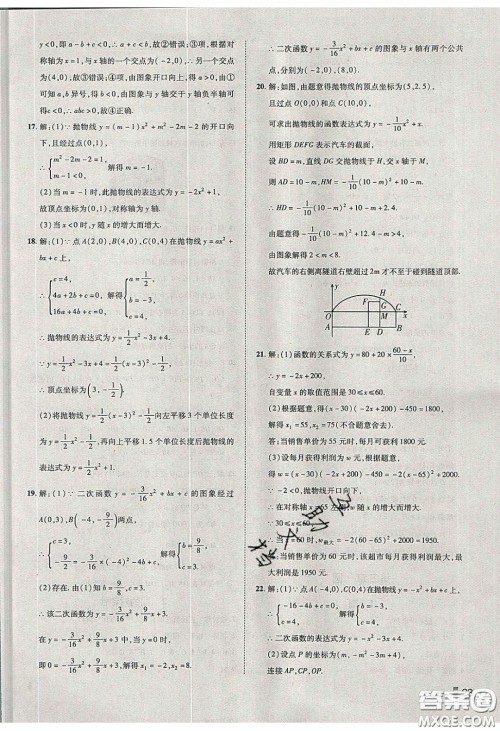 y<0,即 a-b+c<0,∴a+c<b,故②错误;③项,根据对
称轴为 x=1,与 x 轴的一个交点为(-2,0),∴另一个交点为
(4,0),故③错误;④项,由图象开口向上,得 a>0,由对称轴知
a,b 异号,得 b<0,由图象与 y 轴交于 y 轴负半轴,得
c<0,∴abc>0,故④正确.
17.解:(1)∵抛物线 y=(m-1)x²+m²-2m-2 的开口向
下,且经过点(0,1),
∴{m²-2m-2=1, m-1<0, 解得 m=-1.
(2)当 m=-1 时,此抛物线的表达式为 y=-2x²+1,
故顶点坐标为(0,1),对称轴为 y 轴.
(3)当 x<0 时,y 随 x 的增大而增大.
18.解:(1)∵点 A(2,0),B(4,0),C(0,4)在抛物线 y=ax²+
bx+c 上,
∴{c=4, 4a+2b+c=0, 16a+4b+c=0, 解得{a=1/2, b=-3, c=4,
∴抛物线的表达式为 y=1/2x²-3x+4.
∵y=1/2x²-3x+4=1/2(x-3)²-1/2,
∴顶点坐标为(3,-1/2).
(2)将抛物线向左平移 3 个单位长度
为 y=1/2x²-1/2,再向上平移 1.5 个单位长度后抛物线的表达
式为 y=1/2x²+1.
19.解:(1)∵二次函数 y=-3/16x²+bx+c 的图象经过
A(0,3),B(-4,-9/2)两点,
∴{c=3, -3/16×(-4)²-4b+c=-9/2, 解得{b=9/8, c=3.
(2)存在.由(1)得,b=9/8,c=3,
∴该二次函数为 y=-3/16x²+9/8x+3.
在 y=-3/16x²+9/8x+3 中,当 y=0 时,
即 0=-3/16x²+9/8x+3,解得 x₁=-2,x₂=8.
∴二次函数 y=-3/16x²+bx+c 的图象与 x 轴有两个公共
点,分别为(-2,0),(8,0).
20.解:由题意得抛物线的顶点坐标为(5,2.5),
且过点 O(0,0),C(10,0),
可求出抛物线的函数表达式为 y=-1/10x²+x.
用矩形 DEFG 表示汽车的截面,
设 BD=m,直线 DG 交抛物线于 H,交 x 轴于 M,
则 AD=10-m,HM=-1/10(10-m)²+10-m,
∴HD=-1/10(10-m)²+10-m+
由题意得-1/10(10-m)²+10-m+
由图象解得 2<m<8.
故汽车的右侧离隧道右壁超过 2m 才不至于碰到隧道顶部.
y
H
F
G
O
M
C
x
A
E
D
B
21.解:(1)函数的关系式为 y=80+20×(60-x)/10,
∴y=-2x+200,
自变量 x 的取值范围是 30≤x≤60.
(2)根据题意,得(x-30)(-2x+200)-450=1800,
解得 x₁=55,x₂=75(不合题意舍去).
答:当销售单价为 55 元时,每月可获利 1800 元.
(3)设每月获得的利润为 w 元,根据题意,
得 w=(x-30)(-2x+200)-450=-2(x-65)²+2000,
∵-2<0,抛物线开口向下,
∴在对称轴 x=65 左侧,w 随 x 的增大而增大.
∵30≤x≤60,
∴当 x=60 时,w最大=-2(60-65)²+2000=1950.
答:当销售单价为 60 元时,该超市每月获得利润最大,最
大利润是 1950 元.
22.解:(1)∵点 A(-4,0),C(0,4)在抛物线 y=-x²+bx+c 上,
∴{-16-4b+c=0, c=4, 解得{b=-3, c=4,
∴二次函数的表达式为 y=-x²-3x+4.
(2)设点 P 的坐标为(m,-m²-3m+4).
连接 AP,CP,OP.
答案圈
MXQE.COM